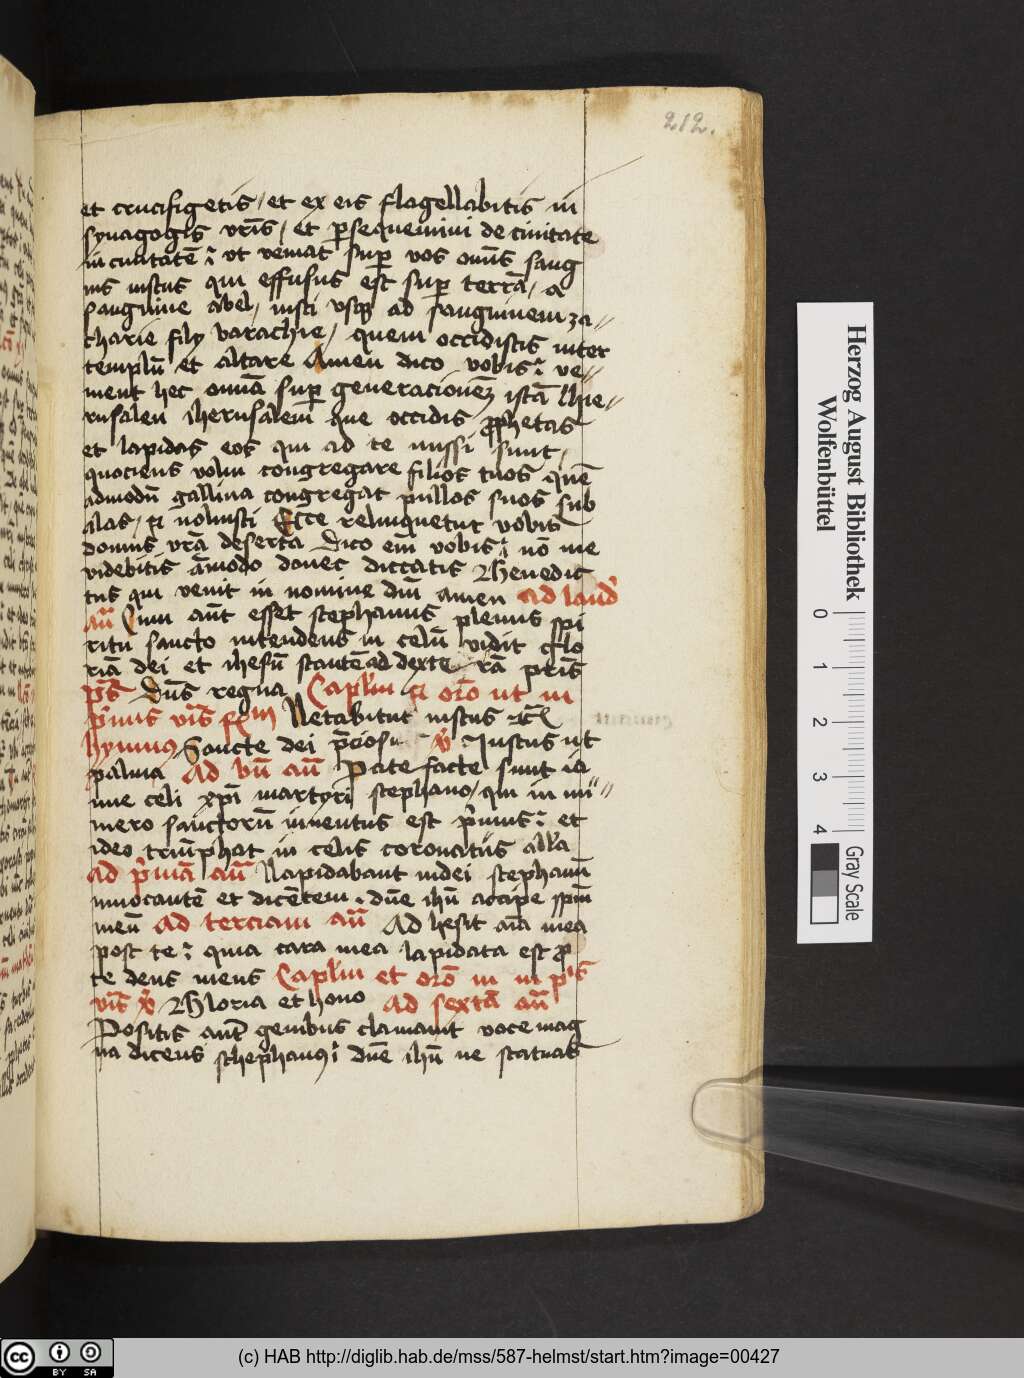 212.
et crucifigetis / et ex eis flagellabitis in
synagogis vr̄is / et ꝑsequemini de ciuitate
in ciuitatē : vt veniat suꝑ vos om̄s sang
uis iustus qui effusus est suꝑ terrā / a
sanguine abel / iusti vsqꝫ ad sanguinem za
charie filij barachie / quem occidistis inter
templū et altare Amen dico vobis : ve
nient hec om̄ia suꝑ generacionem istā Jhe
rusalem iherusalem que occidis ꝓphetas
et lapidas eos qui ad te missi sunt /
quociens volui congregare filios tuos quē
admodū gallina congregat pullos suos sub
alas / et noluisti Ecce relinquetur vobis
domus vr̄a deserta Dico em̄ vobis : nō me
videbitis āmodo donec diccatis Benedic
tus qui venit in nomine dn̄i amen ad laud
an̄ Cum aūt esset stephanus plenus spi
ritu sancto intendens in celū vidit glo
riā dei et ihesū stantē ad dexterā ptris
ps̄ Dn̄s regna Caplm et orō ut in
p̄mis vīs Rm̄ Letabitur iustus
hymnus Sancte dei p̄ciosi v̄ Iustus ut
palma Ad bn̄ an̄ Pate facte sunt ia
nue celi xp̄i martyri stephano / qui in nu
mero sanctorū inuentus est p̄mus : et
ideo triūphat in celis coronatus alla
Ad p̄mā an̄ Lapidabant iudei stephanū
inuocantē et dicētem . dn̄e ihū accipe spm̄
meū Ad terciam an̄ Ad hesit aīa mea
post te : quia caro mea lapidata est ꝓ
te deus meus Caplm et orō ut in p̄s
vīs v̄ Gloria et hono Ad sextā an̄
Positis aūt genibus clamauit voce mag
na dicens stephanus : dn̄e ihū ne statuas
Herzog August Bibliothek
Wolfenbüttel
0 1 2 3 4
Gray Scale
cc BY SA
(c) HAB http://diglib.hab.de/mss/587-helmst/start.htm?image=00427